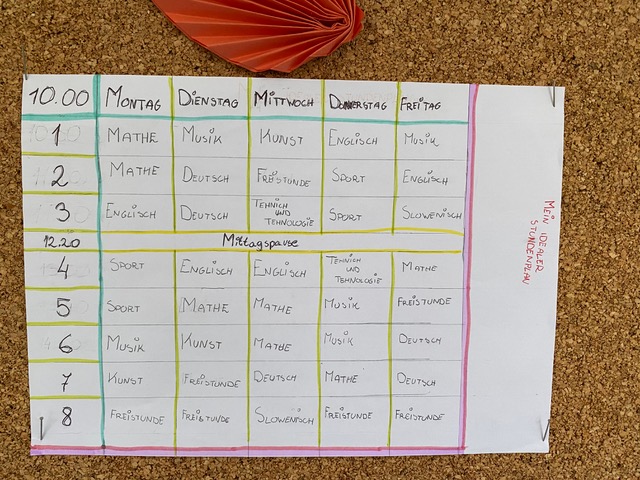 10.00 MONTAG DIENSTAG MITTWOCH DONNERSTAG FREITAG
1 MATHE MUSIK KUNST ENGLISCH MUSIK
2 MATHE DEUTSCH FREISTUNDE SPORT ENGLISCH
3 ENGLISCH DEUTSCH TEHNICH UND TEHNOLOGIE SPORT SLOWENISCH
12.20 Mittagspause
4 SPORT ENGLISCH ENGLISCH TEHNICH UND TEHNOLOGIE MATHE
5 SPORT MATHE MATHE MUSIK FREISTUNDE
6 MUSIK KUNST MATHE MUSIK DEUTSCH
7 KUNST FREISTUNDE DEUTSCH MATHE DEUTSCH
8 FREISTUNDE FREISTUNDE SLOWENISCH FREISTUNDE FREISTUNDE
MEIN IDEALER
STUNDENPLAN